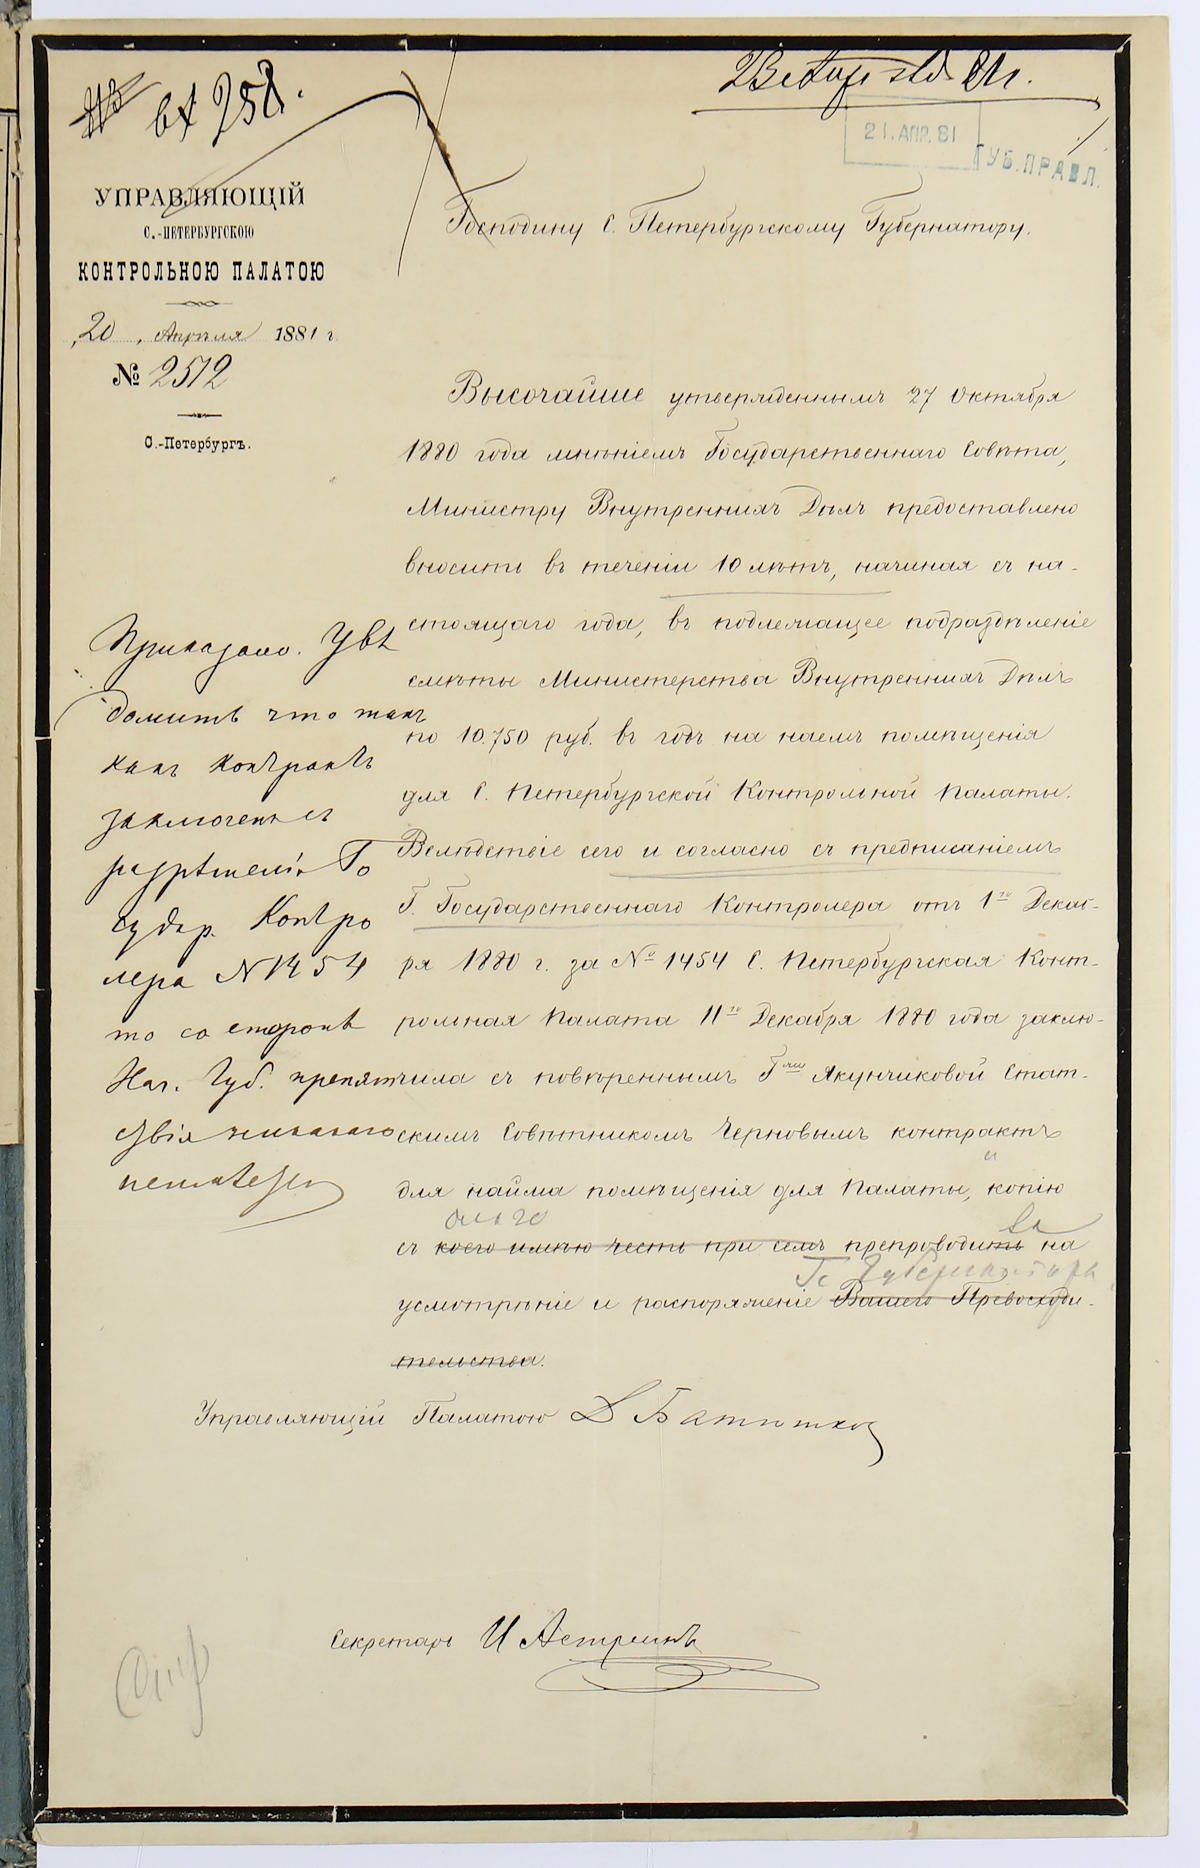 вх 258.
23 Апр
21. АПР. 81
ГУБ. ПРАВЛ.
УПРАВЛЯЮЩІЙ
С.-ПЕТЕРБУРГСКОЮ
КОНТРОЛЬНОЮ ПАЛАТОЮ
„20„ Апрѣля 1881 г.
№ 2512
С.-Петербургъ.
Господину С. Петербургскому Губернатору.
Высочайше утвержденнымъ 27 Октября
1880 года мнѣніемъ Государственнаго Совѣта,
Министру Внутреннихъ Дѣлъ предоставлено
вносить въ теченіи 10 лѣтъ, начиная съ на-
стоящаго года, въ подлежащее подраздѣленіе
смѣты Министерства Внутреннихъ Дѣлъ
по 10.750 руб. въ годъ на наемъ помѣщенія
для С. Петербургской Контрольной Палаты.
Вслѣдствіе сего и согласно съ предписаніемъ
Г. Государственнаго Контролера отъ 1го Декаб-
ря 1880 г. за № 1454 С. Петербургская Конт-
рольная Палата 11го Декабря 1880 года заклю-
чила съ повѣреннымъ Гжи Якунчиковой Стат-
скимъ Совѣтникомъ Черновымъ контрактъ
для найма помѣщенія для Палаты, и копію
съ коего имѣю честь при семъ препроводить на
усмотрѣніе и распоряженіе Вашего Превосходи-
тельства.
Г. Губернатора
Управляющій Палатою Д Батюшков
Секретарь И Астреинъ
Приказано. Увѣ
домить что такъ
какъ контрактъ
заключенъ съ
разрѣшенія Го
судар. Контро
лера № 1454
то со стороны
Нач. Губ. препят
ствія никакого